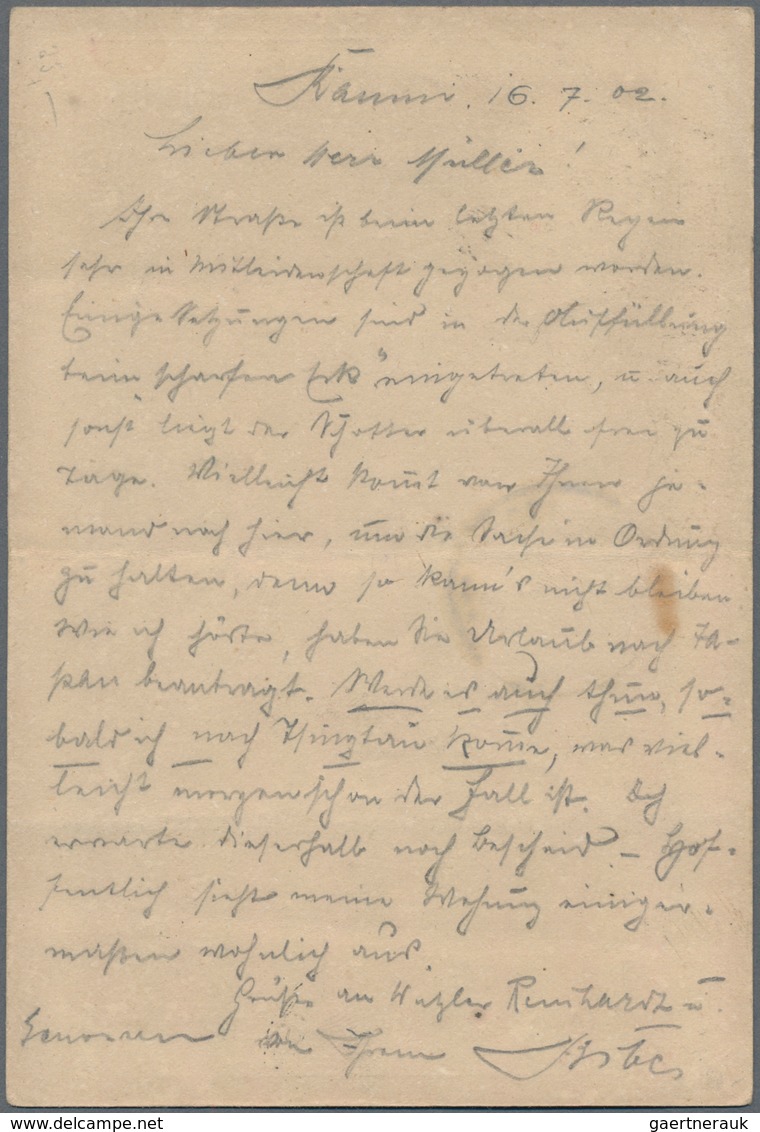 Kaumi, 16. 7. 02.
Lieber Herr Müller!
Ihre Straße ist beim letzten Regen
sehr in Mitleidenschaft gezogen worden.
Einige Setzungen sind in der Auffüllung
beim "scharfen Eck" eingetreten, u. auch
sonst liegt der Schotter überall frei zu
Tage. Vielleicht kom̄t von Ihnen je-
mand noch hier, um die Sache in Ordnung
zu halten, denn so kann's nicht bleiben
Wie ich hörte, haben Sie Urlaub nach Ja-
pan beantragt. Werde es auch thun, so-
bald ich nach Tsingtau kom̄e, was viel-
leicht morgen schon der Fall ist. Ich
erwarte dieserhalb noch Bescheid – Hof-
fentlich sieht meine Wohnung einiger-
maßen wohnlich aus.
Grüße an Witzler Reinhardt u.
von Ihrem
gaertnerauk